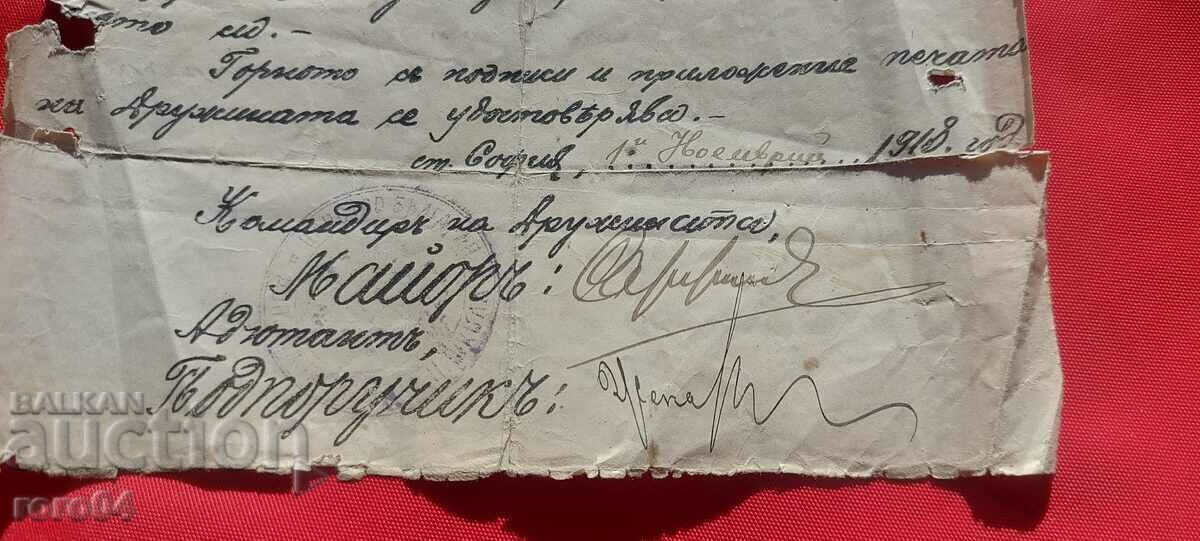 ид.-
Горното се подписи и приложение печата
на Дружината се удостовѣрява.-
ст. София, 1й Ноемврий 1918. год
Командиръ на Дружината,
Майоръ:
Адютантъ,
Подпоручикъ:
BALKAN
auction
roro04